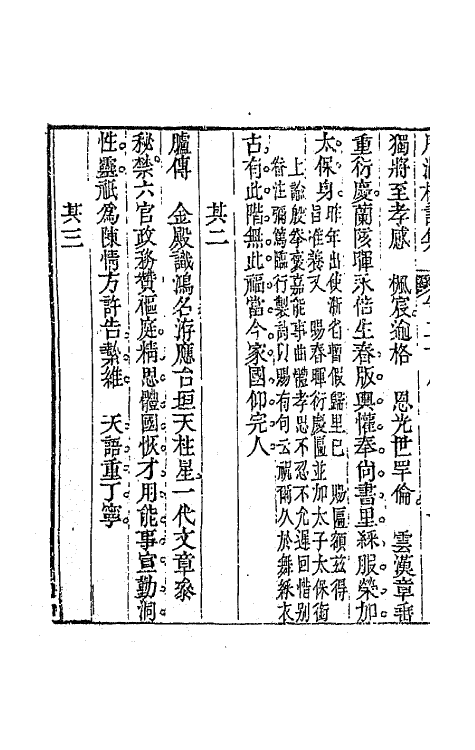 獨將至孝感　楓宸逾格　恩光世罕倫　雲漢章垂
重衍慶蘭陔暉永倍生春版輿懽奉尙書里綵服榮加
太保身
昨年出使浙省暫假歸里已　賜匾額茲得
旨准養又　賜春暉衍慶匾並加太子太保銜
上諭殷拳褒嘉能事出體孝思不忍不允遲回惜别
眷注彌篤臨行製詩以賜有句云祝爾久於舞綵衣
古有此階無此福當今家國仰完人
其二
臚傳　金殿識鴻名洊應台垣天柱星一代文章叅
秘禁六官政務贊樞庭精思體國恢才用能事宣勤洞
性靈祇爲陳情方許告縶維　天語重丁寧
其三